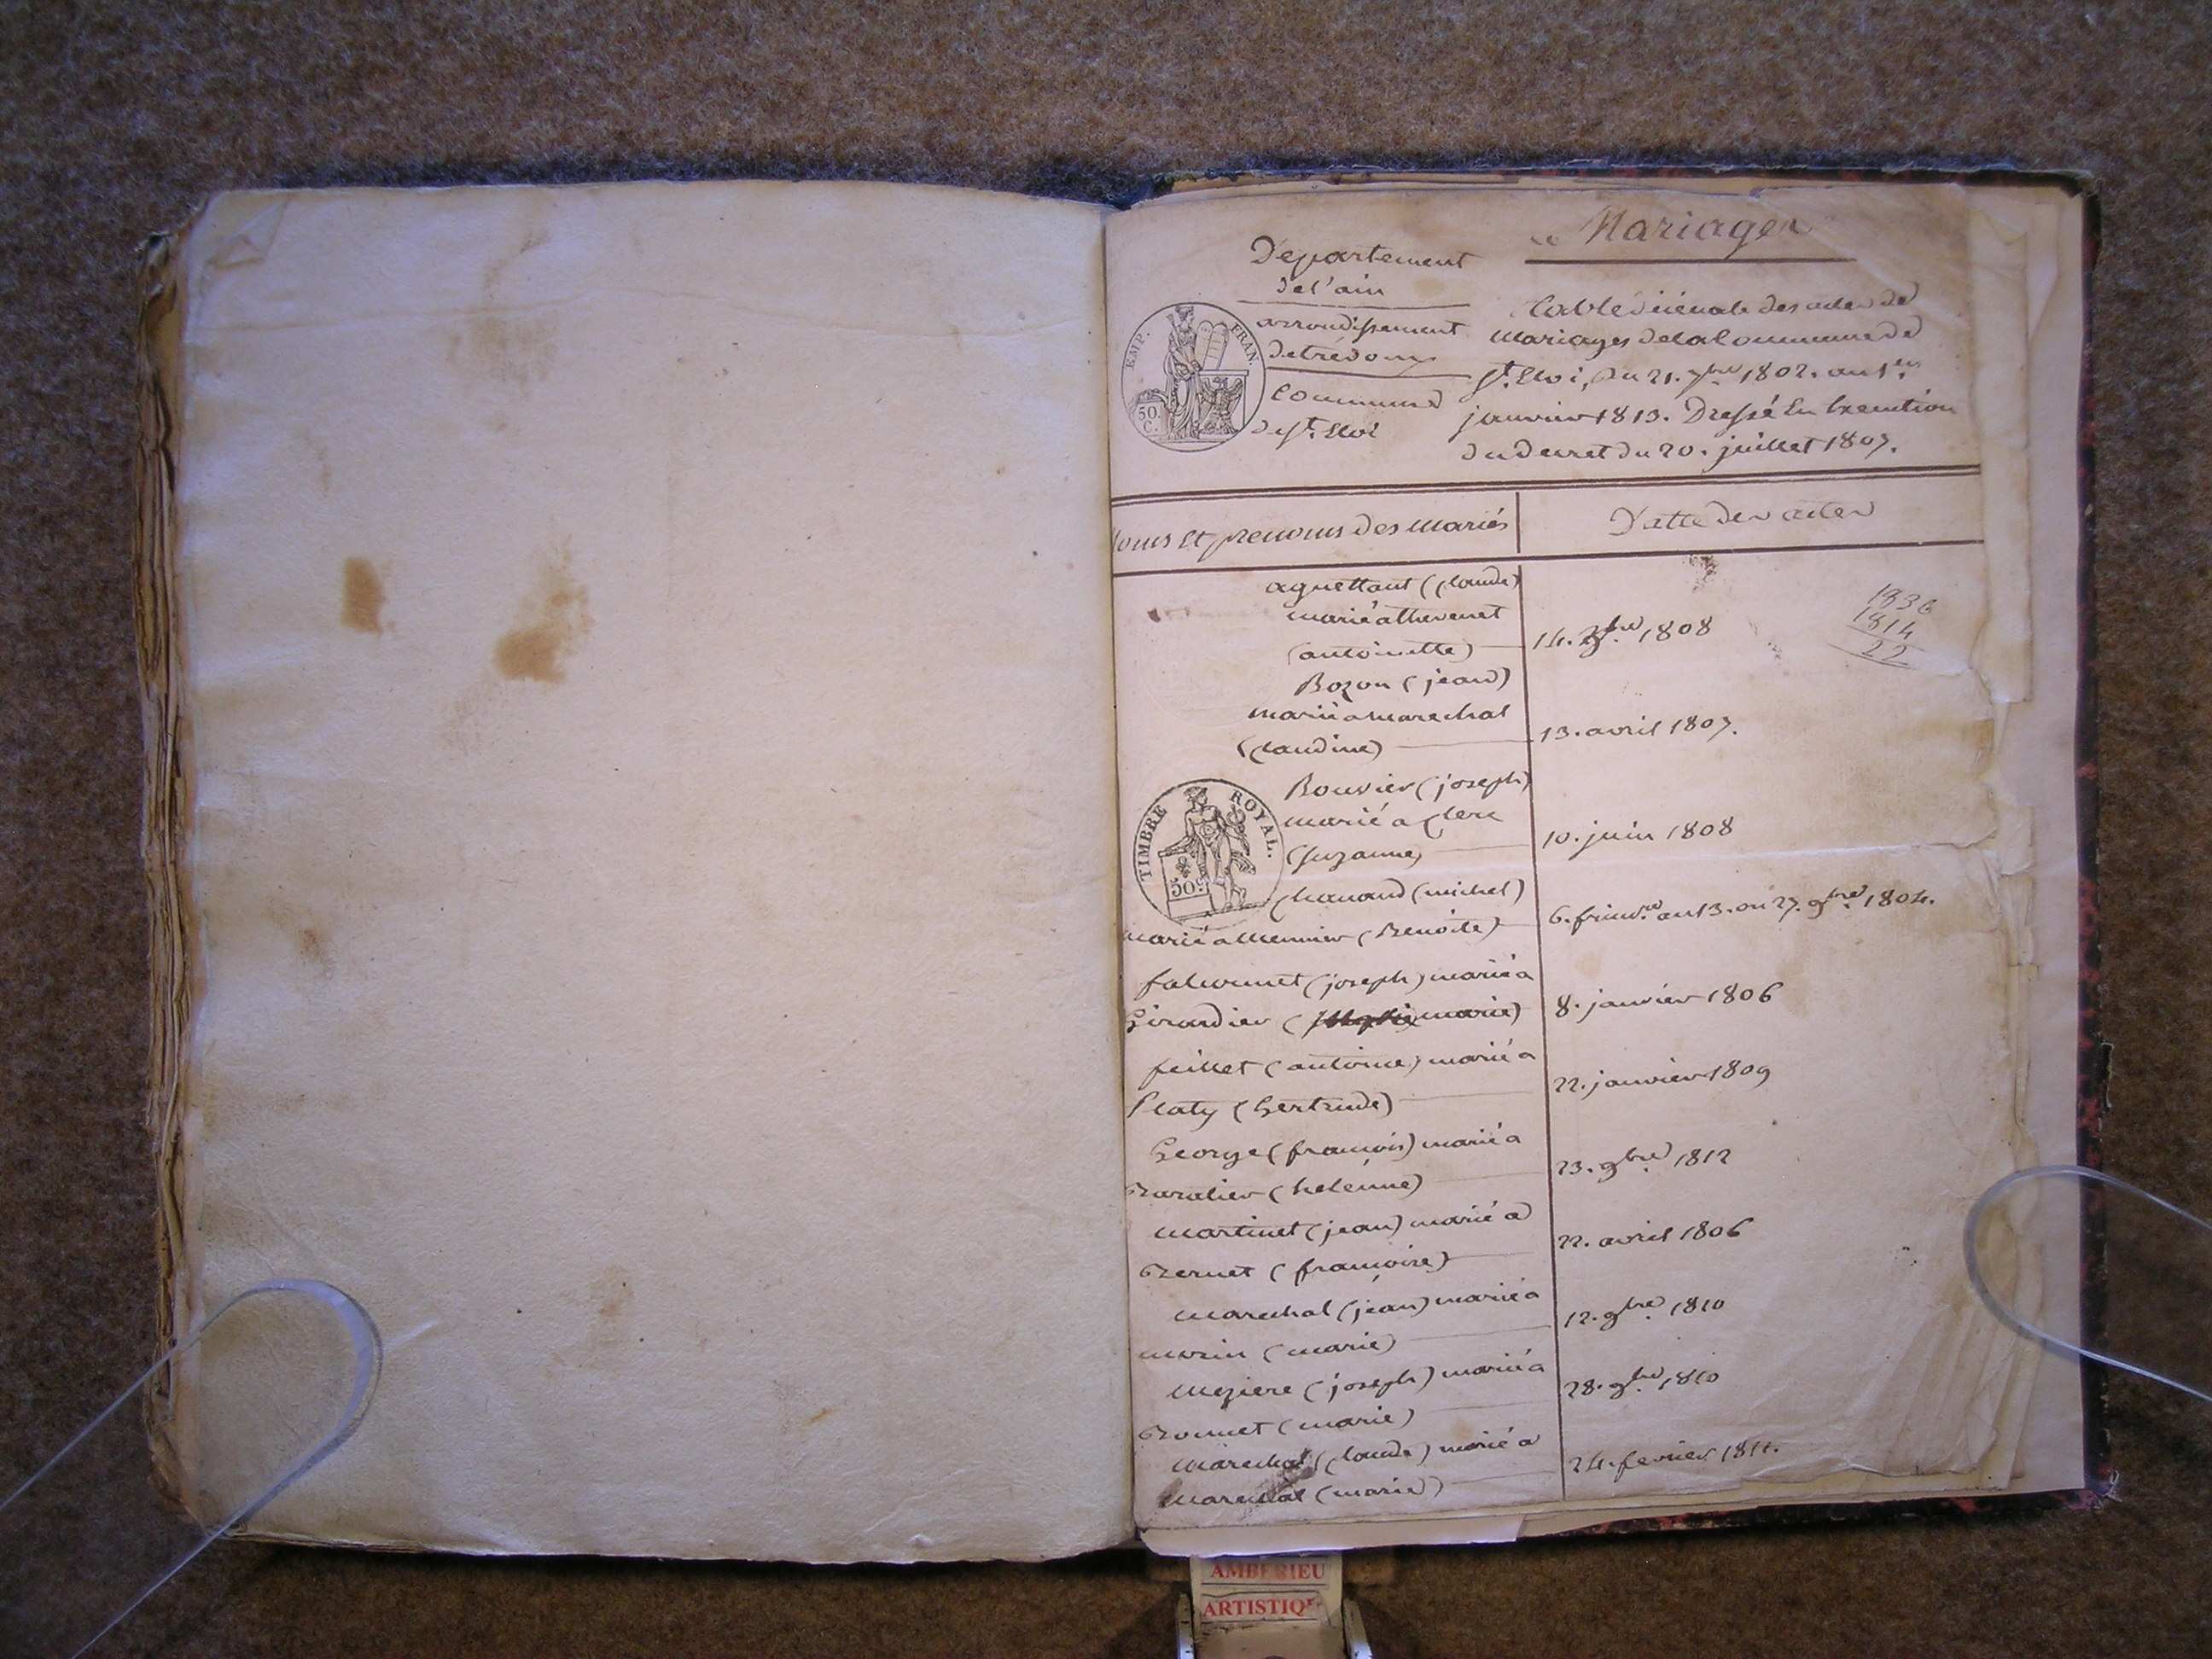 Mariages
Département
de l'ain
arrondissement
detrévoux
Commune
de st. Eloi
EMP. FRAN.
50.
C.
Table Décénale des actes de
Mariages de la Commune de
st. Eloi, Du 21. 7bre 1802. au 1er.
janvier 1813. Dressé En Execution
du Decret du 20. juillet 1807.
Noms Et prenoms des Mariés
Datte des actes
aguettant (Claude)
marié a thevenet
(antoinette)
14. 1808
1836
1814
22
Bozon (jean)
marié a marechal
(Claudine)
13. avril 1807.
TIMBRE ROYAL.
50c
Bouvier (joseph)
marié a Clerc
(suzanne)
10. juin 1808
Chanand (michel)
marié a Meunier (Benoite)
6. frimre. an 13. ou 27. 9bre. 1804.
falconnet (joseph) marié a
Girardier (marie)
8. janvier 1806
feillet (antoine) marié a
Platy (Gertrude)
22. janvier 1809
George (francois) marié a
Baralier (helenne)
23. 9bre. 1812
martinet (jean) marié a
Bernet (francoise)
22. avril 1806
marechal (jean) marié a
morin (marie)
12. 9bre. 1810
meziere (joseph) marié a
Bonnet (marie)
28. 9bre. 1810
marechal (Claude) marié a
marechal (marie)
24. fevrier 1811.
AMBERIEU
ARTISTIQ